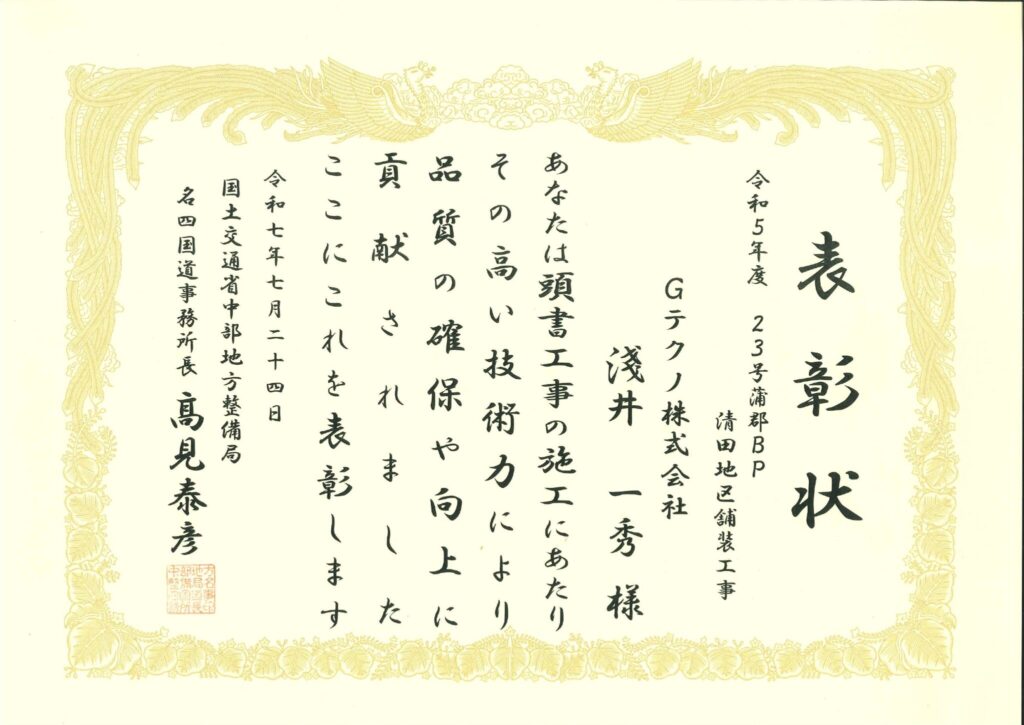 表彰状
令和5年度 23号蒲郡BP
清田地区舗装工事
Gテクノ株式会社
淺井 一秀 様
あなたは頭書工事の施工にあたり
その高い技術力により
品質の確保や向上に
貢献されました
ここにこれを表彰します
令和七年七月二十四日
国土交通省中部地方整備局
名四国道事務所長 髙見泰彦